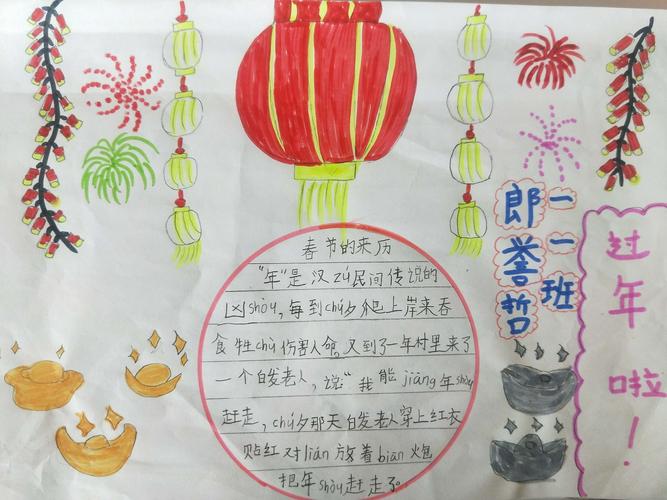 春节的来历
"年"是汉zú民间传说的
凶shòu,每到chú夕爬上岸来吞
食牲chù伤害人命,又到了一年村里来了
一个白发老人,说:"我能jiāng年shòu
赶走,chú夕那天白发老人穿上红衣
贴红对lián放着biān炮
把年shòu赶走了。
一一班
郎誉哲
过年啦!